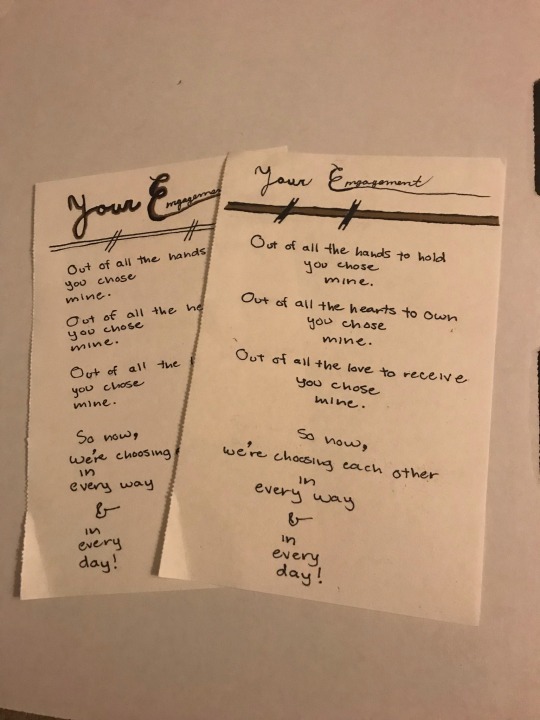 Your Engagement
Out of all the hands
you chose
mine.
Out of all the
you chose
mine.
Out of all the
you chose
mine.
So now,
we're choosing
in
every way
&
in
every
day!
Your Engagement
Out of all the hands to hold
you chose
mine.
Out of all the hearts to own
you chose
mine.
Out of all the love to receive
you chose
mine.
So now,
we're choosing each other
in
every way
&
in
every
day!